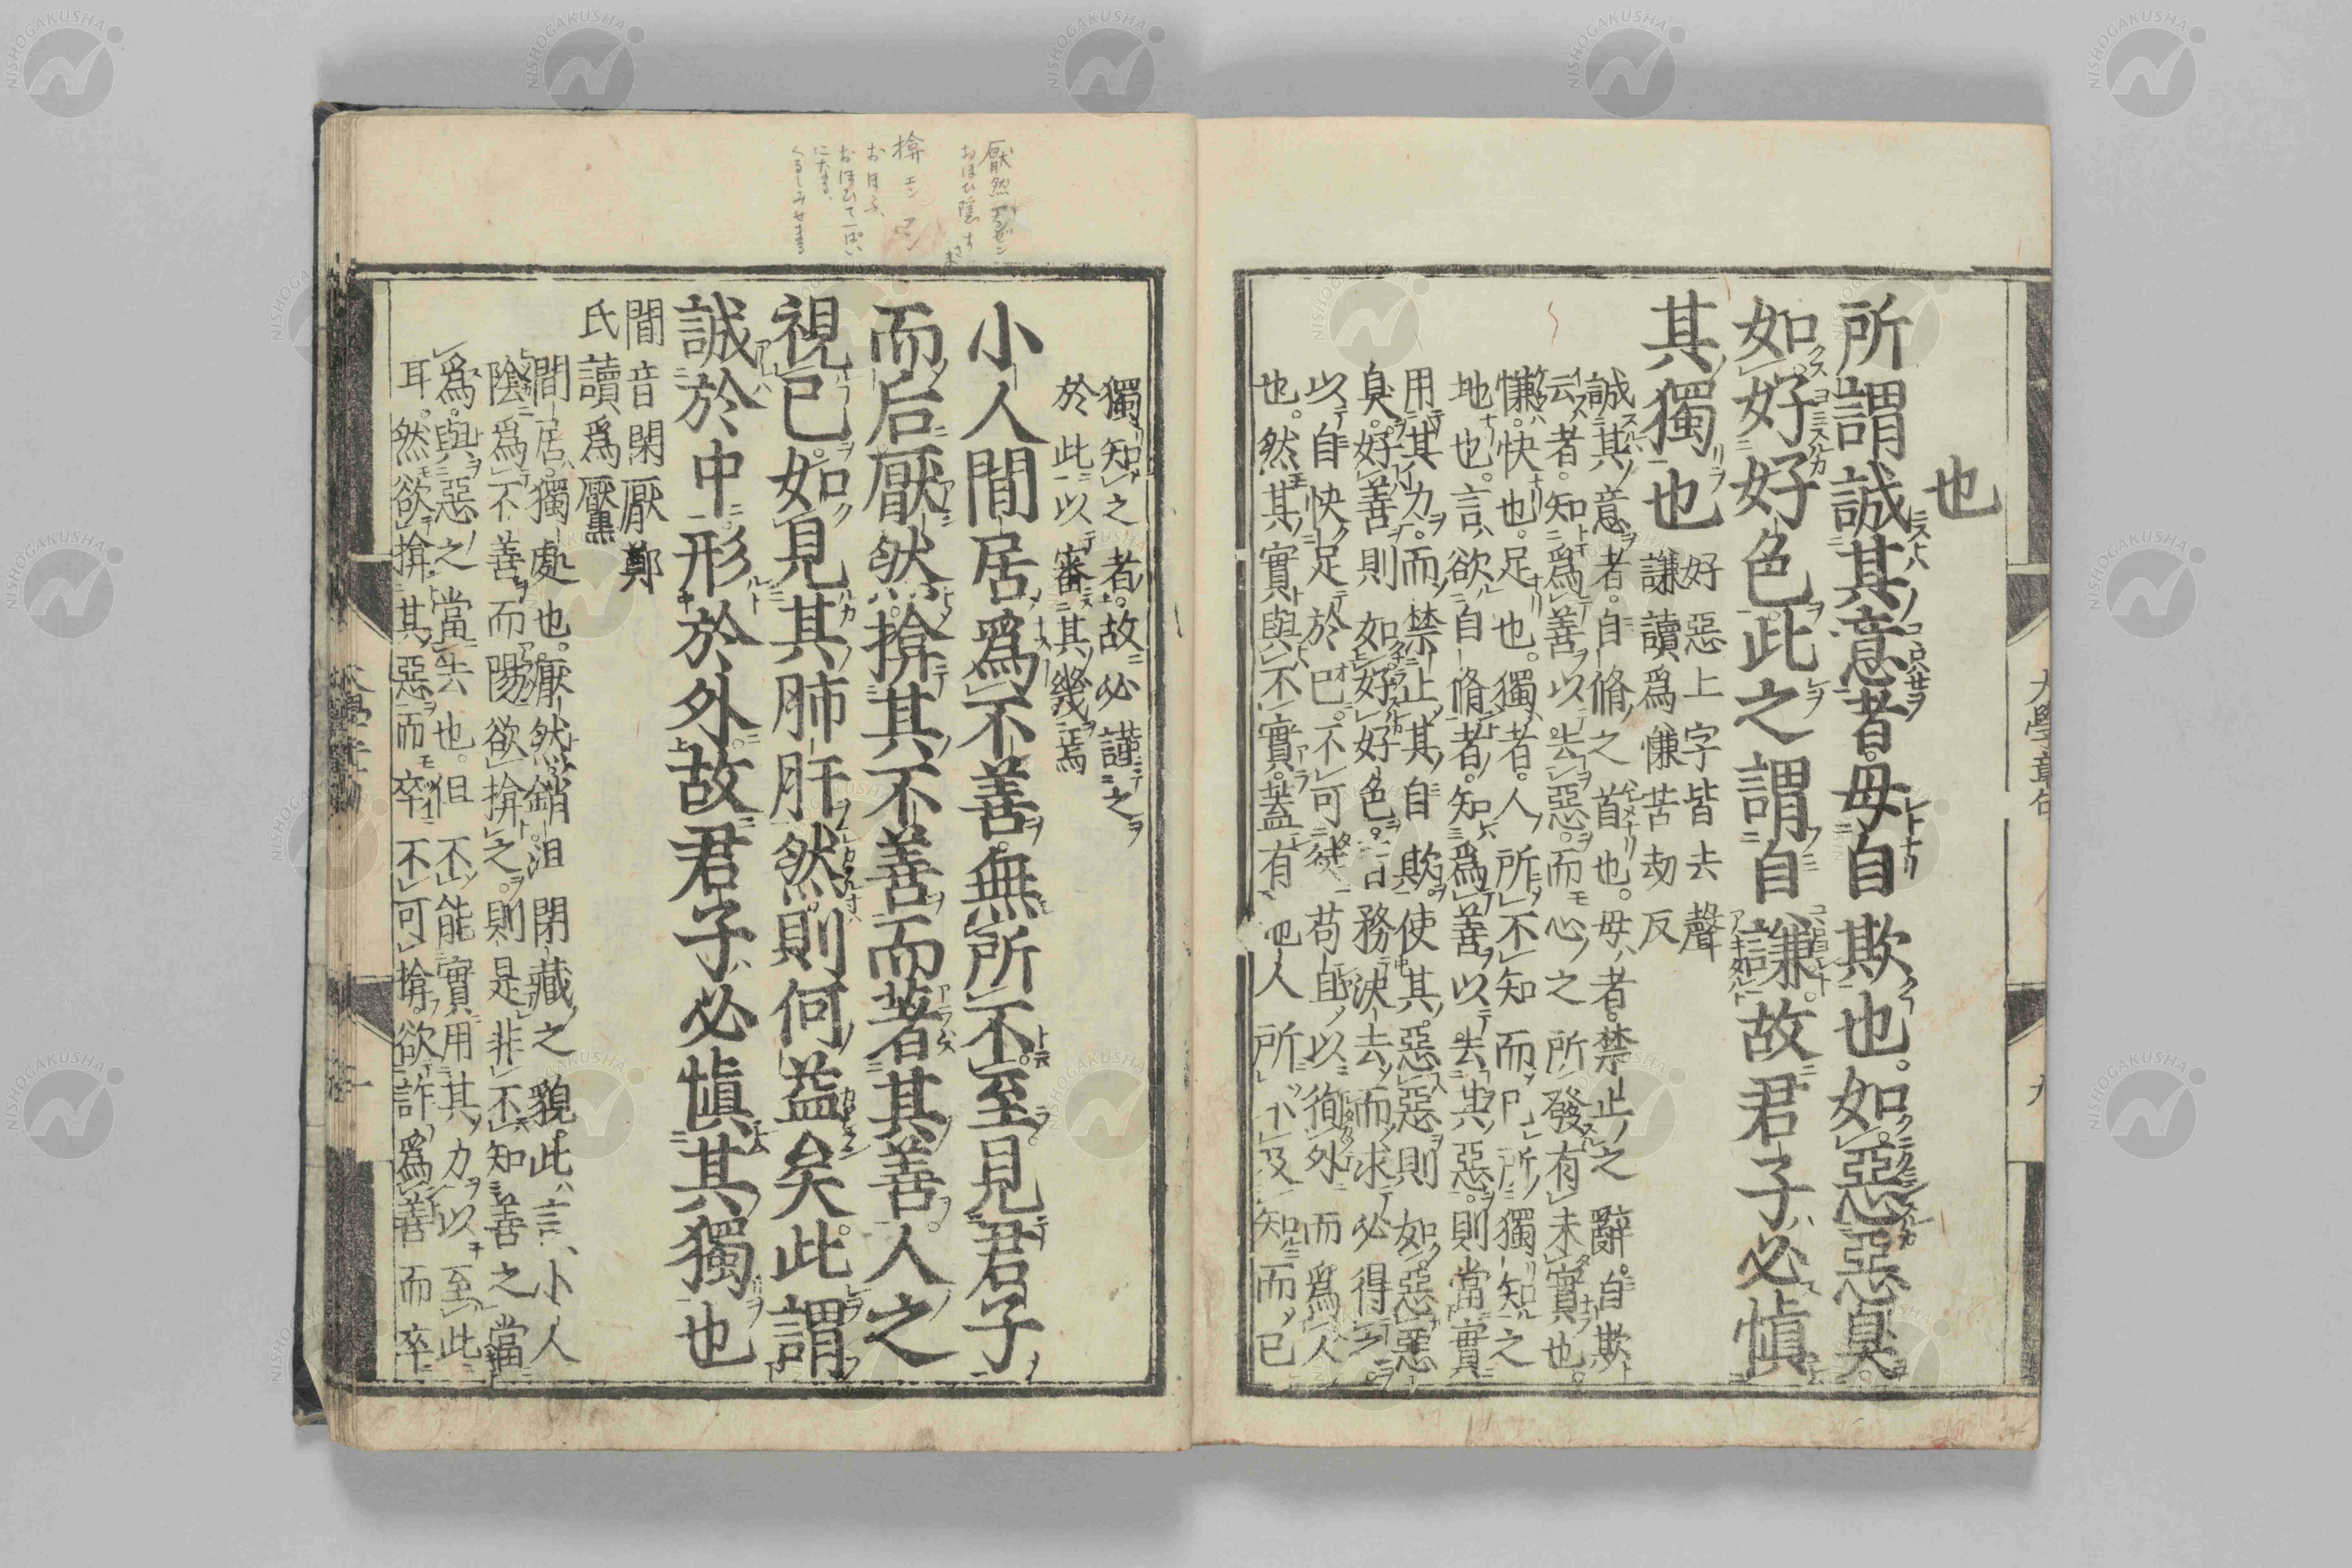 也
所謂誠其意者。毋自欺也。如惡惡臭。
如好好色。此之謂自謙。故君子必愼
其獨也
好惡上字皆去聲
謙讀爲慊苦劫反
誠其意者。自脩之首也。毋者。禁止之辭。自欺
云者。知爲善以去惡。而心之所發有未實也。
慊。快也。足也。獨者。人所不知而己所獨知之
地也。言欲自脩者。知爲善以去其惡。則當實
用其力。而禁止其自欺使其惡惡則如惡惡
臭。好善則如好好色。皆務決去而求必得之。
以自快足於己。不可徒苟且以徇外而爲人
也。然其實與不實。蓋有他人所不及知而己
大學章句
九
獨知之者。故必謹之
於此以審其幾焉
小人間居爲不善。無所不至見君子
而后厭然。揜其不善而著其善。人之
視己。如見其肺肝然。則何益矣。此謂
誠於中形於外。故君子必愼其獨也
間音閑厭鄭
氏讀爲黶
間居。獨處也。厭然銷沮閉藏之貌此言小人
陰爲不善而陽欲揜之。則是非不知善之當
爲。與惡之當去也。但不能實用其力以至此
耳。然欲揜其惡而卒不可揜。欲詐爲善而卒
厭然 アンゼン
おほひ隠すさま
揜 エン アン
おほひて一ぱい
になる、
くるしみせまる